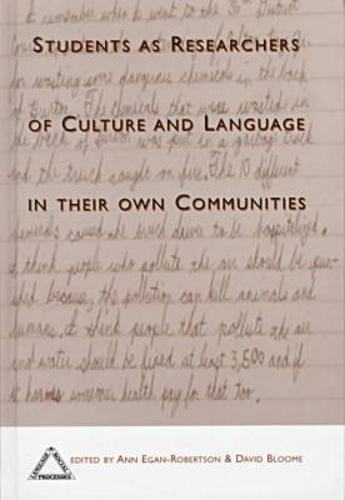 I remember when I went to the District
for wasting some dangerous chemicals in the back
STUDENTS AS RESEARCHERS
of Burton. The chemicals that were wasted in
OF CULTURE AND LANGUAGE
the back of was put in a garbage truck
and the truck caught on fire. The 10 different
IN THEIR OWN COMMUNITIES
caused the truck driver to be hospitalized.
I think people who pollute the air should be pun-
ished because, the pollution can kill animals and
humans. I think people that pollute the air
and water should be fined at least 3,500 and if
it harms someones health pay for that too.
EDITED BY ANN EGAN-ROBERTSON & DAVID BLOOME
LANGUAGE & SOCIAL PROCESSES